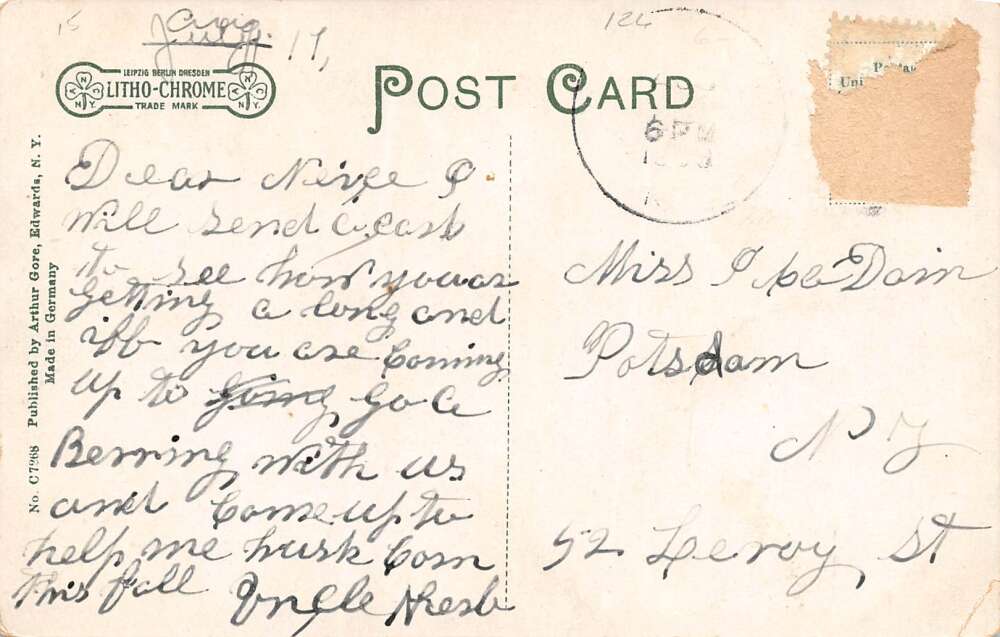 15
124
July 17,
LEIPZIG BERLIN DRESDEN
LITHO-CHROME
TRADE MARK
POST CARD
6 PM
Uni
Posta
No. C7268 Published by Arthur Gore, Edwards, N. Y.
Made in Germany
Dear Niece I
will send a card
to see how you ar
getting a long and
iff you are Coming
up to going go a
Berring with us
and Come up to
help me husk Corn
this fall Uncle
Miss
Dain
Potsdam
N Y
52 Leroy St